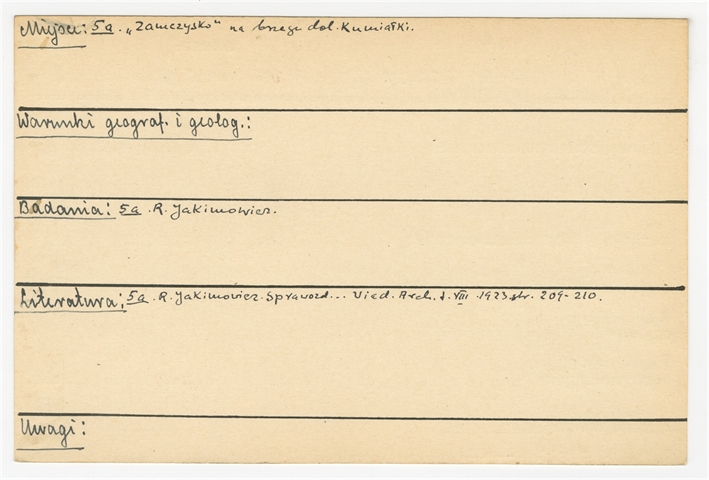 Miejsce: 5a. „Zamczysko" na brzegu dol. Kumiałki.
Warunki geograf. i geolog.:
Badania: 5a. R. Jakimowicz.
Literatura: 5a. R. Jakimowicz. Sprawozd... Wiad. Arch. t. VIII. 1923 str. 209-210.
Uwagi: